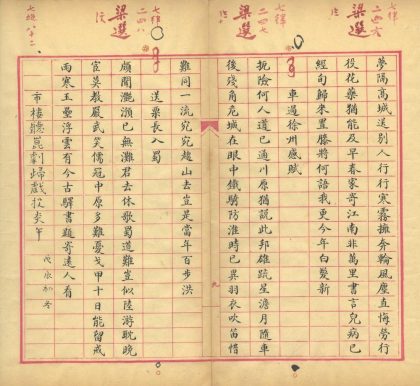 夢隔高城送別人行行寒霧擁奔輪風塵直悔勞行
役花藥猶能及早春家寄江南非萬里書言兒病已
經旬歸來置膝將何語我更今年白髮新
車過徐州感賦
扼險何人道已通川原猶說此邦雄疏星澹月隨車
後殘角危城在眼中鐵騎防淮時已異羽衣吹笛惜
難同一流宛宛趨山去豈是當年百步洪
送票長入蜀
頗聞灔澦已無灘君去休歌蜀道難豈似陸游耽晚
宦莫教嚴武笑儒冠中原多難憂戈甲十日能留戒
雨寒玉壘浮雲有今古驛書題寄遠人看
市樓聽崑劇歸戲投炎午
戊辰初冬
七律
二四六
梁選
七律
二四七
梁選
七律
二四八
梁選
七絕八十二
九